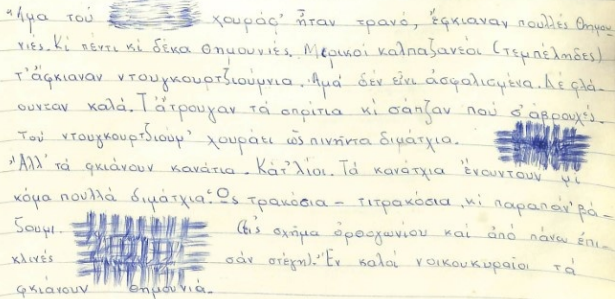 "Άμα τού χουράφ' ἤταν τρανό, ἔφκιαναν πουλλές θημου-
νιές. Κί πέντι κί δέκα θημουνιές. Μερικοί καλπαζανέοι (τεμπέληδες)
τ' ἄφκιαναν ντουγκουρτζιούμνια. Ἀμά δέν εἶνι ἀσφαλισμένα. Δέ φλά-
ουνταν καλά. Τ' ἄτρουγαν τά σπρίτια κί σάπζαν πού σ' ἀβρουχές.
Τού ντουγκουρτζιούμ' χουράει ὥς πινῆντα διμάτχια.
Ἀλλ' τά φκιάνουν κανάτια. Κάτ' λιοι. Τά κανάτχια ἔνουνταν μι
κόμα πουλλά διμάτχια. Ὥς τρακόσια - τιτρακόσια κι παραπάν' βά-
ζουμι. σχῆμα ὀρθογωνίου καί ἀπό πάνω ἐπι-
κλινές σάν στέγη). Ἐν καλοί νοικουκυραῖοι τά
φκιάνουν θημουνιά.